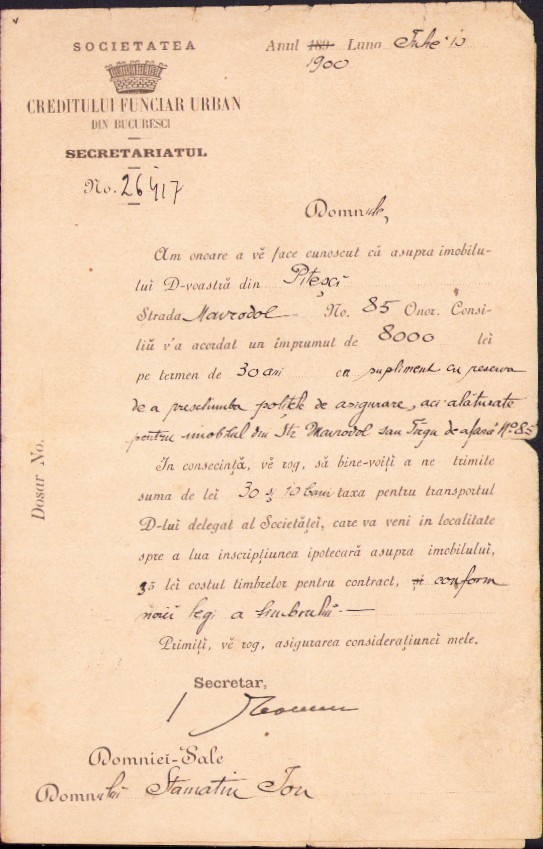 SOCIETATEA
CREDITULUI FUNCIAR URBAN
DIN BUCURESCI
SECRETARIATUL
No. 26417
Anul 189 Luna Iulie 10
1900
Domnule,
Am onoare a vĕ face cunoscut că asupra imobilu-
lui D-voastră din Pitesci
Strada Mavrodol No. 85 Onor. Consi-
liŭ v'a acordat un împrumut de 8000 lei
pe termen de 30 ani cu supliment cu reserva
de a preschimba polițele de asigurare, aci alăturate
pentru imobilul din Str. Mavrodol sau Tîrgu de afară No 85
In consecință, vĕ rog, să bine-voiți a ne trimite
suma de lei 30 și 10 bani taxa pentru transportul
D-lui delegat al Societăței, care va veni in localitate
spre a lua inscripțiunea ipotecară asupra imobilului,
35 lei costul timbrelor pentru contract, și conform
noii legi a timbrului.
Primiți, vĕ rog, asigurarea considerațiunei mele.
Secretar,
Domniei-Sale
Domnului Stamatin Ion
Dosar No.